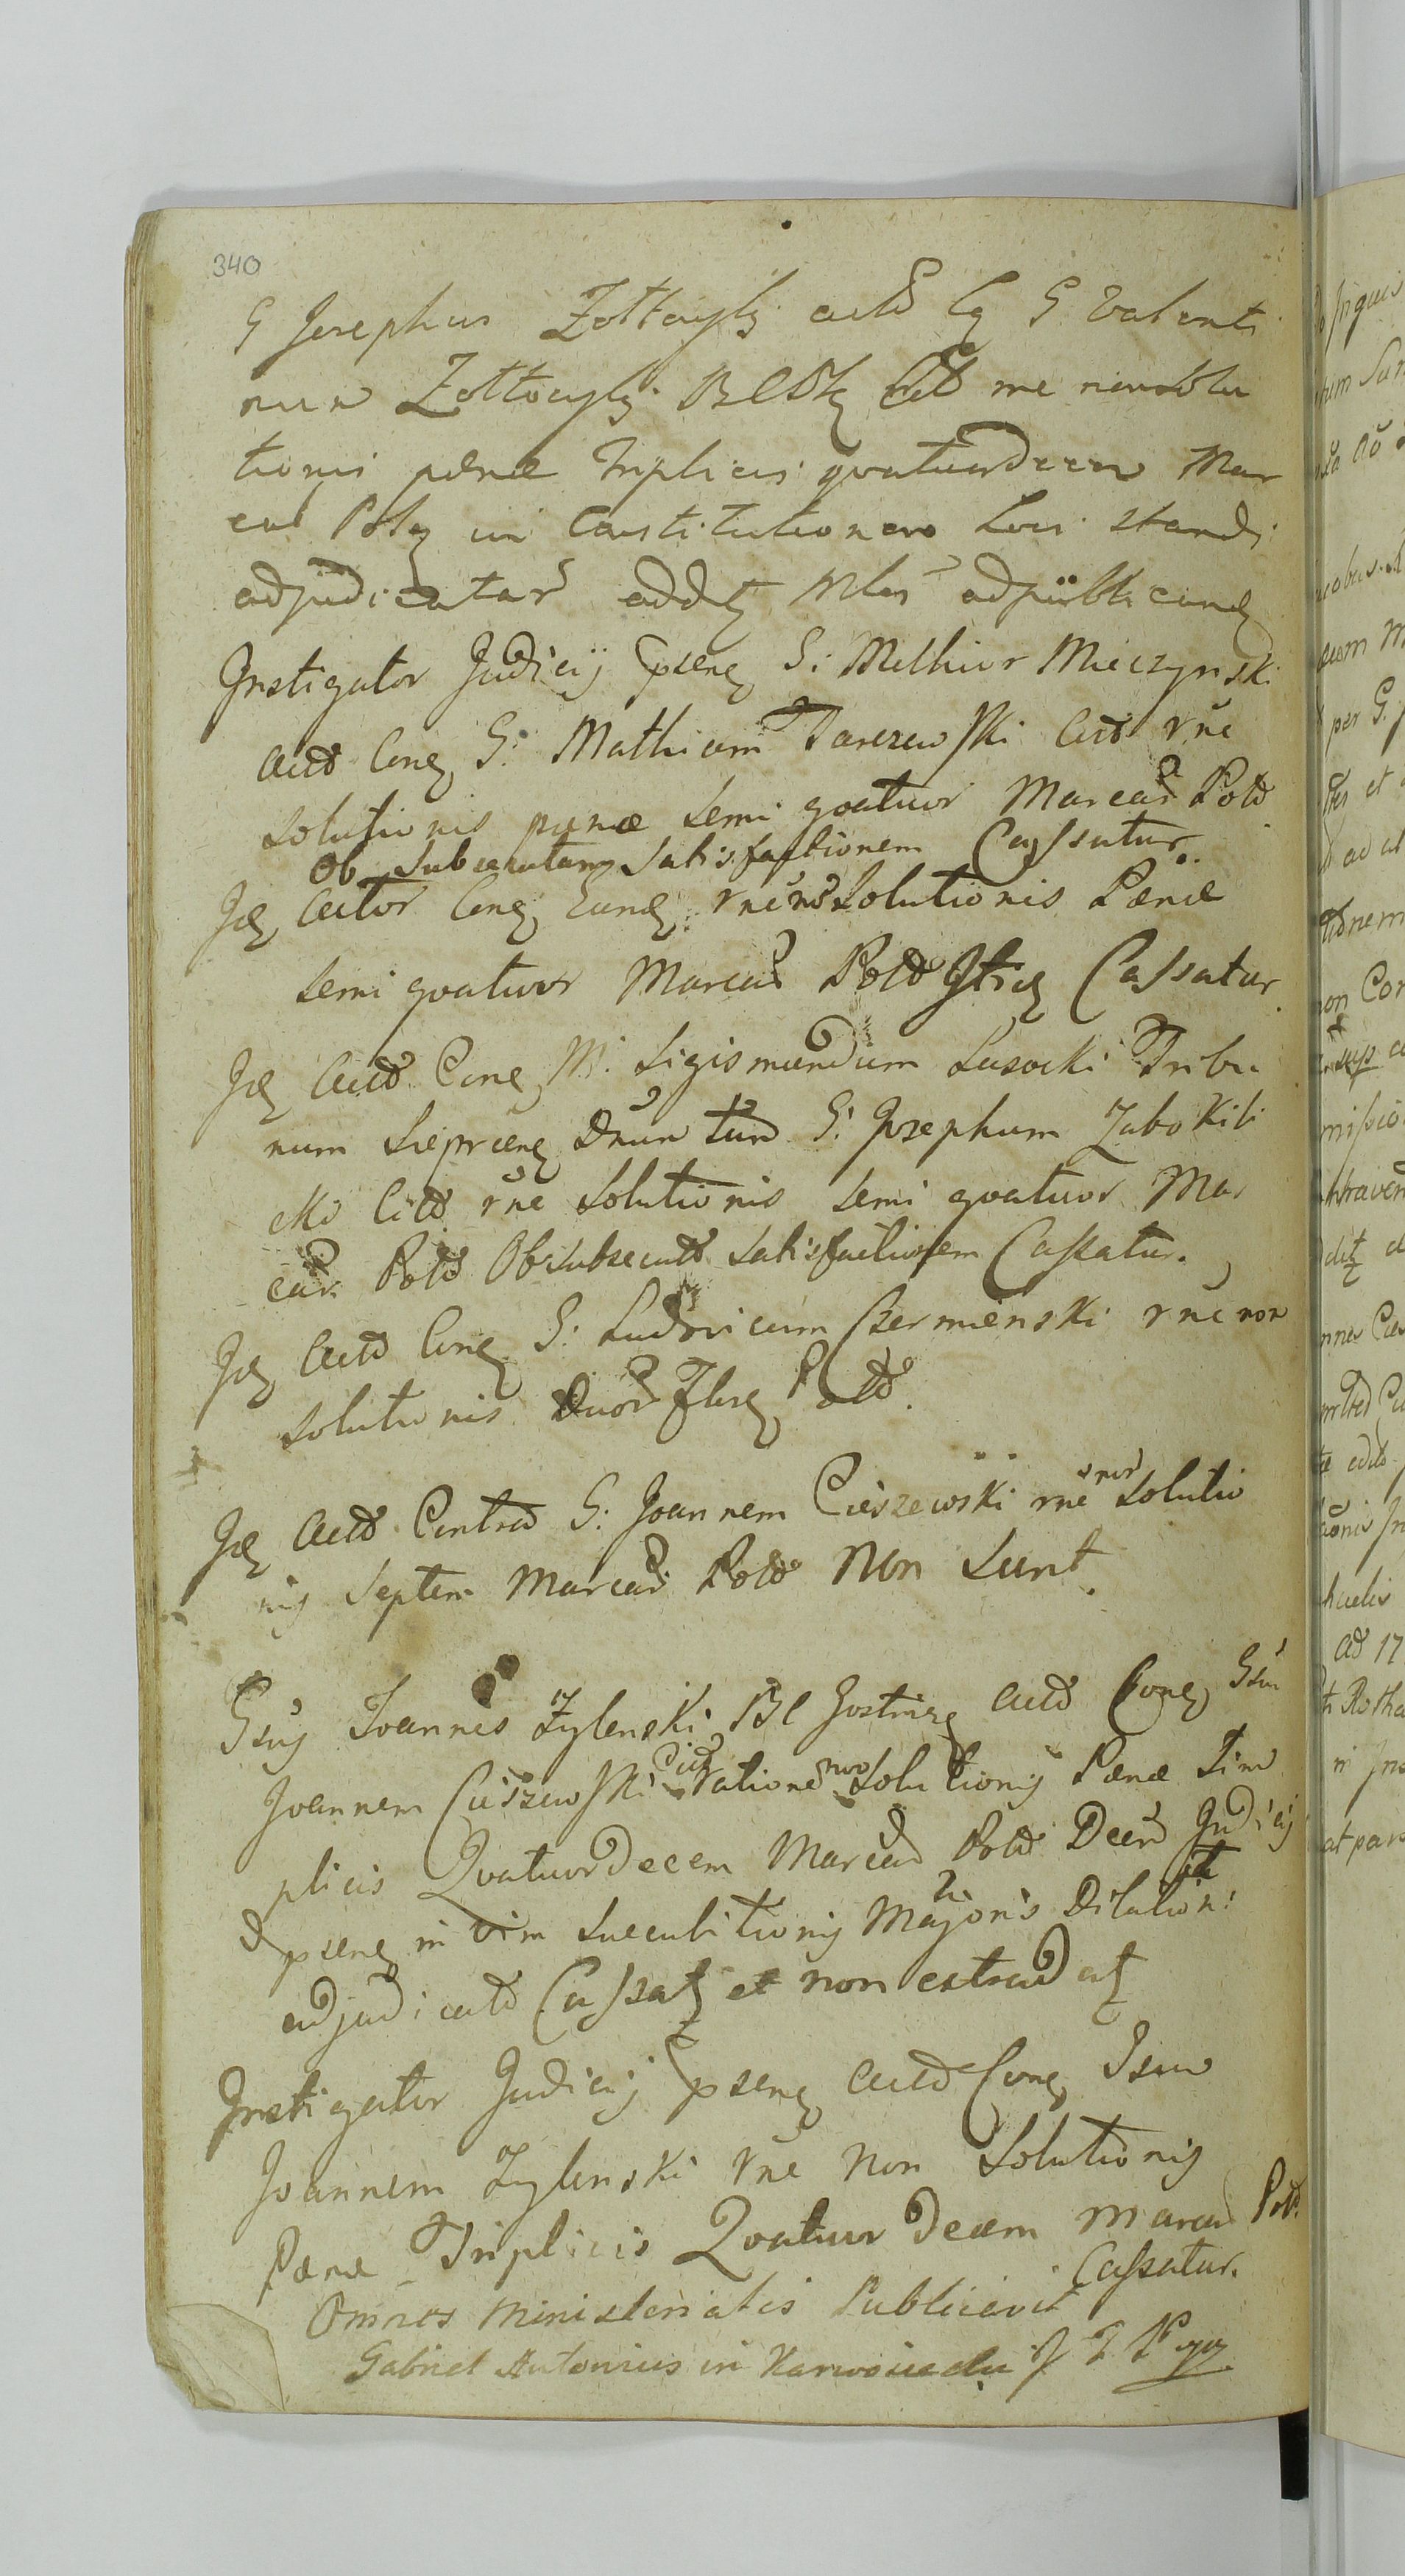 340
G Josephus Zołtowski actd Cg G Valenti
num Zołtowski citd rne nonsolu
tionis pænæ triplicis quatuordecem Mar
cas Polg in Constitutionem Loci standi
adjudicatar addg ad publicand
Instigator Judicij pseng G: Melhior Mieczynski
Actd Cong G: Mathiam Tarczewski Citd rne
solutionis pænæ semi qvatuor Marcar Pold
Ob subsecutam satisfactionem Cassatur.
Idg Actor Cong Eundg. rne no solutionis Pænæ
semi qvatuor Marcar Pold Itidg Cassatur
Idg Actd Cong M: Sigismundum Lasocki Tribu
num Sieprceng Dnum tum G: Josephum Zabokli
cki Citd rne solutionis semi qvatuor Mar
car. Pold Ob subsecutd satisfactionem Cassatur.
Idg Actd Cong G: Ludovicum Czermienski rne non
solutionis Duor flreg Pold.
Idg Actd Contra G: Joannem Cieszewski rne non solutio
nis septem Marcar Pold Non sunt.
Gsus Joannes Zylenski BC Gostinseg Actd Cong Gsum
Joannem Cieszewski Citd ratione non solutionis Pænæ Trim
plicis Qvatuordecem Marcar Pold Decrd Judicij
psentg in vim succubitionis Majoris Dilation:
adjudicatd Cassatg et non extradatg
Instigator Judicij pseng Actd Cong Gsum
Joannem Zylenski rne Non solutionis
Pænæ Triplicis Qvatuor Decem Marcar Pold.
Cassatur.
Omnes Ministerialis Publicavit
Gabriel Antonius in Karwosiecka